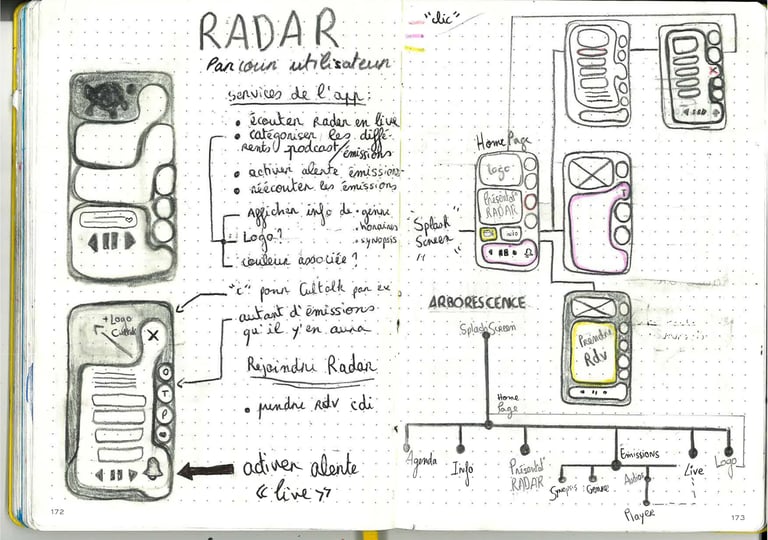 RADAR
Parcour utilisateur
services de l'app:
• écouter Radar en live
• catégoriser les diffé-
rents podcast/émissions
• activer alerte émissions
• réécouter les émissions
Afficher info de • genre
• horaires
• synopsis
Logo?
couleur associée?
+ Logo
X
"c" pour Cultalk par ex
autant d'émissions
qu'il y'en aura
Rejoindre Radar
• prendre rdv cdi
O
T
P
activer alerte
"live"
172
"clic"
HomePage
Logo
Présentat°
RADAR
info
"Splash
Screen"
X
T
Prendre
Rdv
ARBORESCENCE
SplashScreen
Home
Page
Agenda
Info
Présentat°
RADAR
Emissions
Synopsis
Genre
Audios
Player
Live
Logo
173